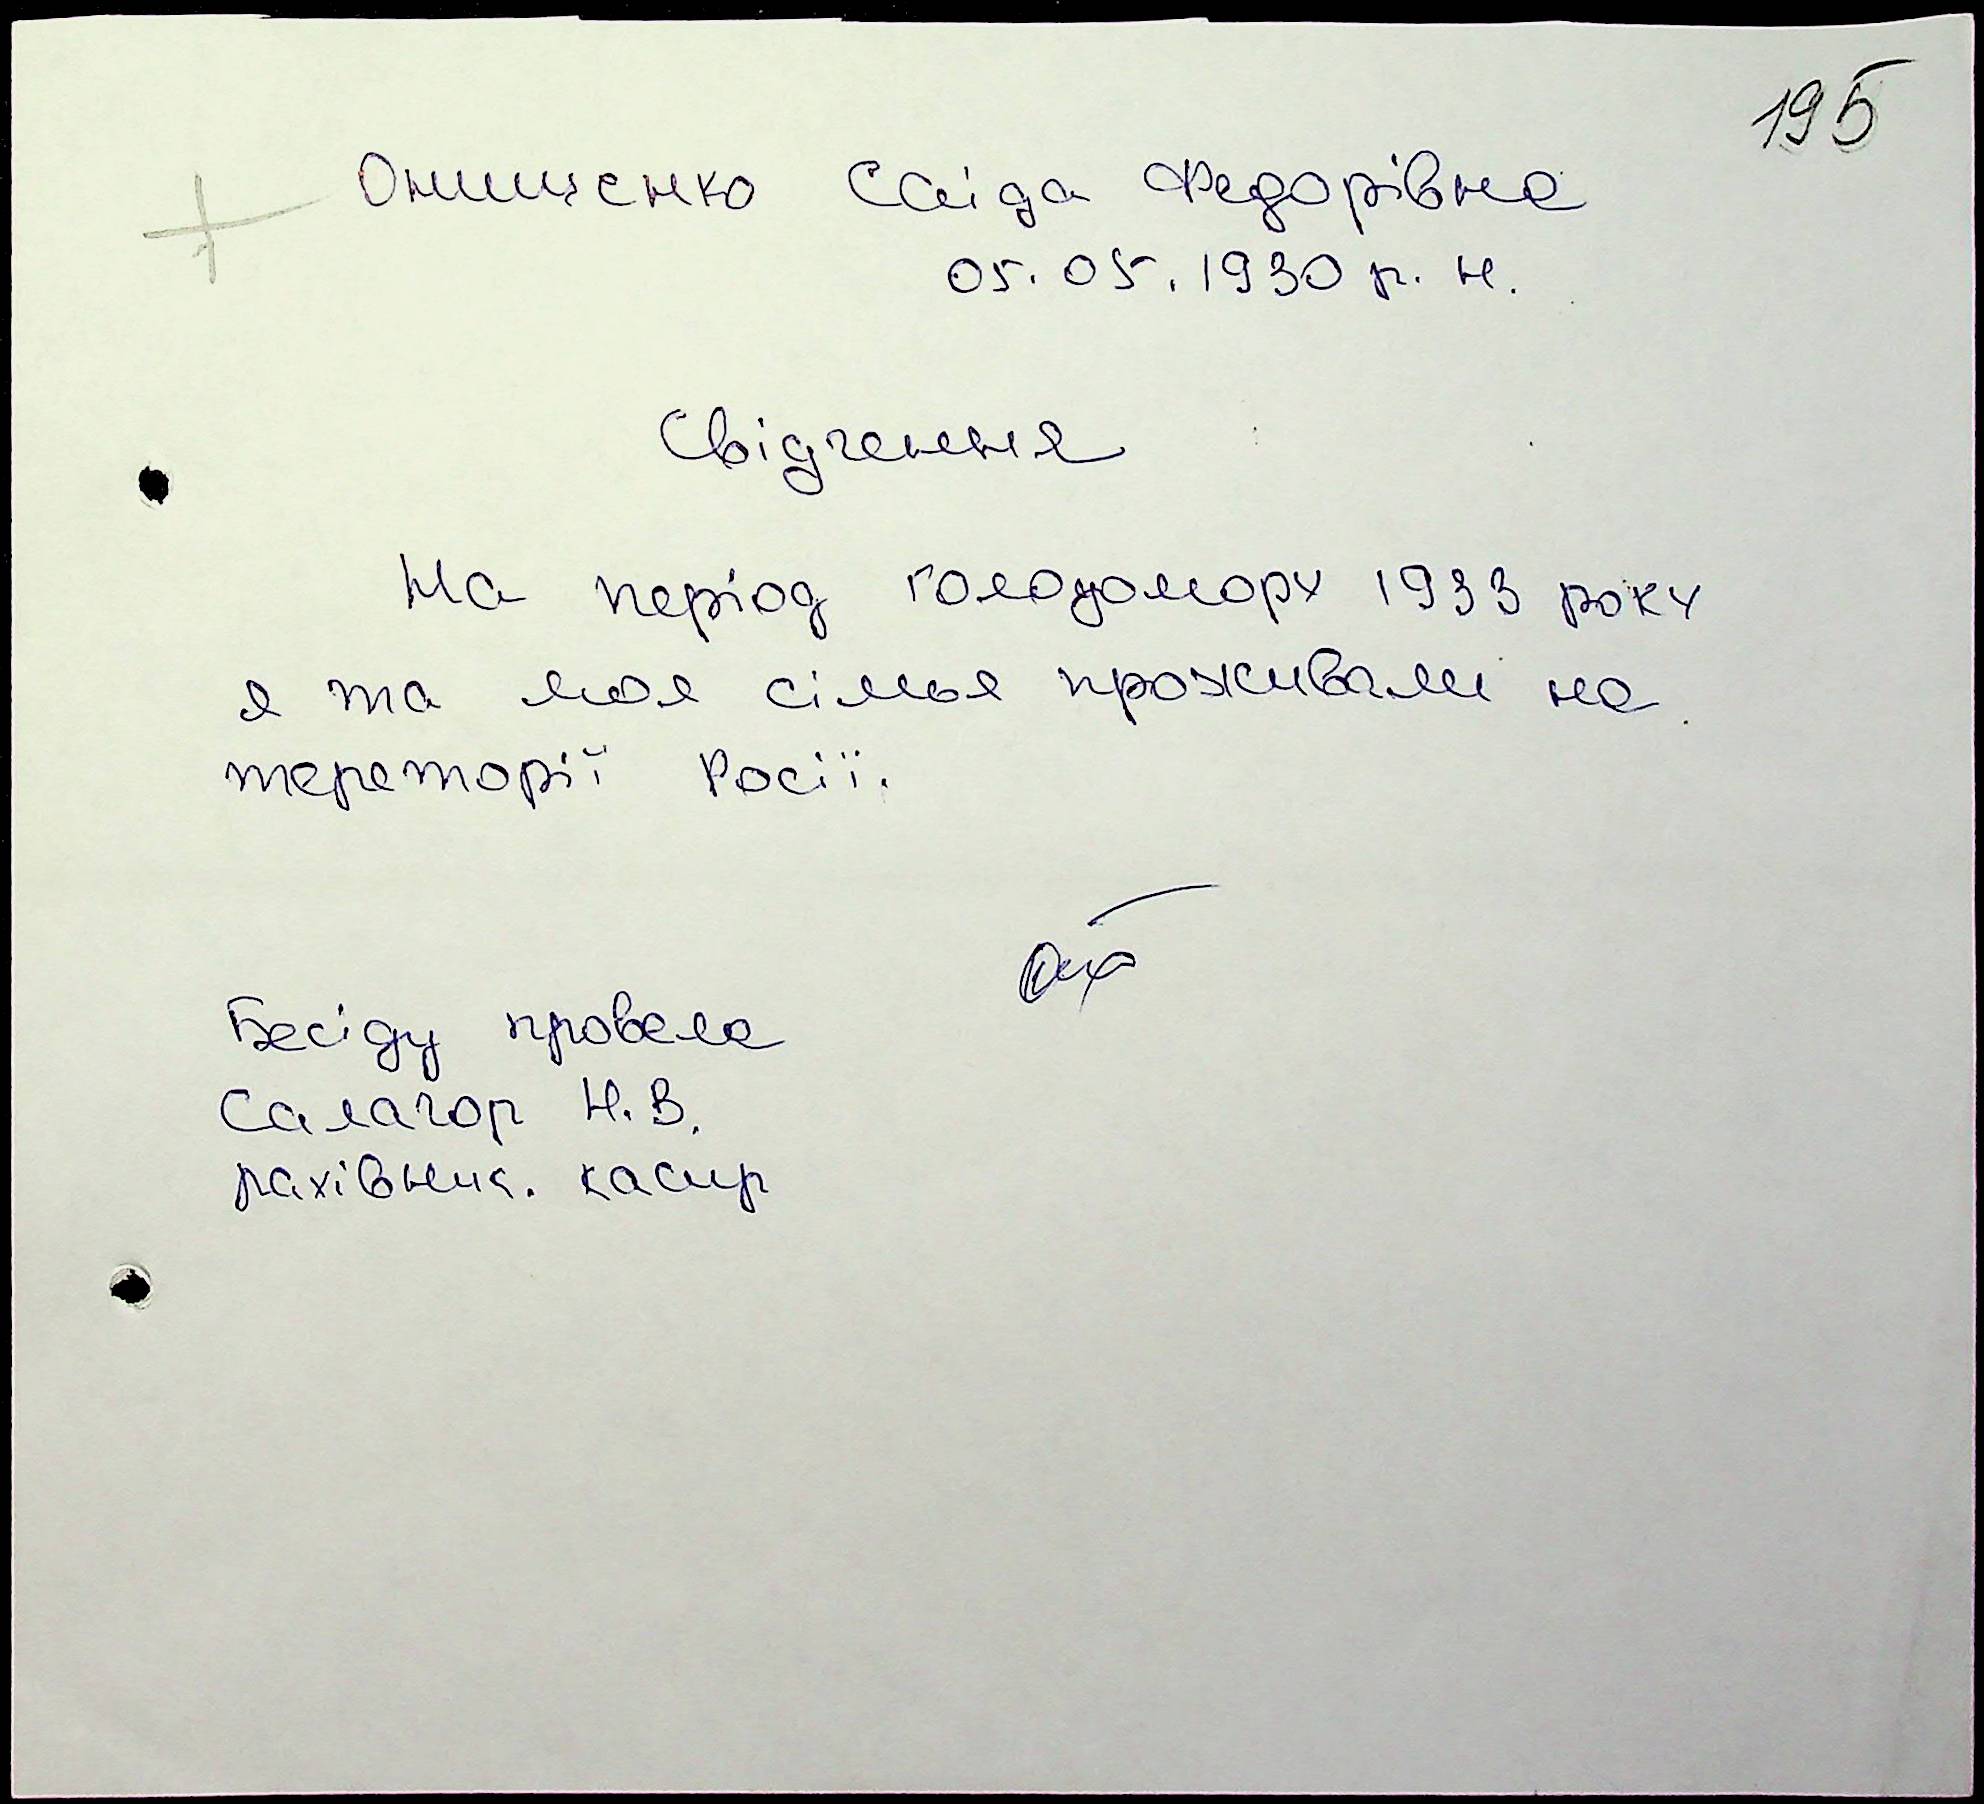 195
Онищенко Саіда Федорівна
05.05.1930 р.н.
Свідчення
На період голодомору 1933 року
я та моя сімья проживали на
тереторії Росії.
Бесіду провела
Салагор Н.В.
рахівник. касир